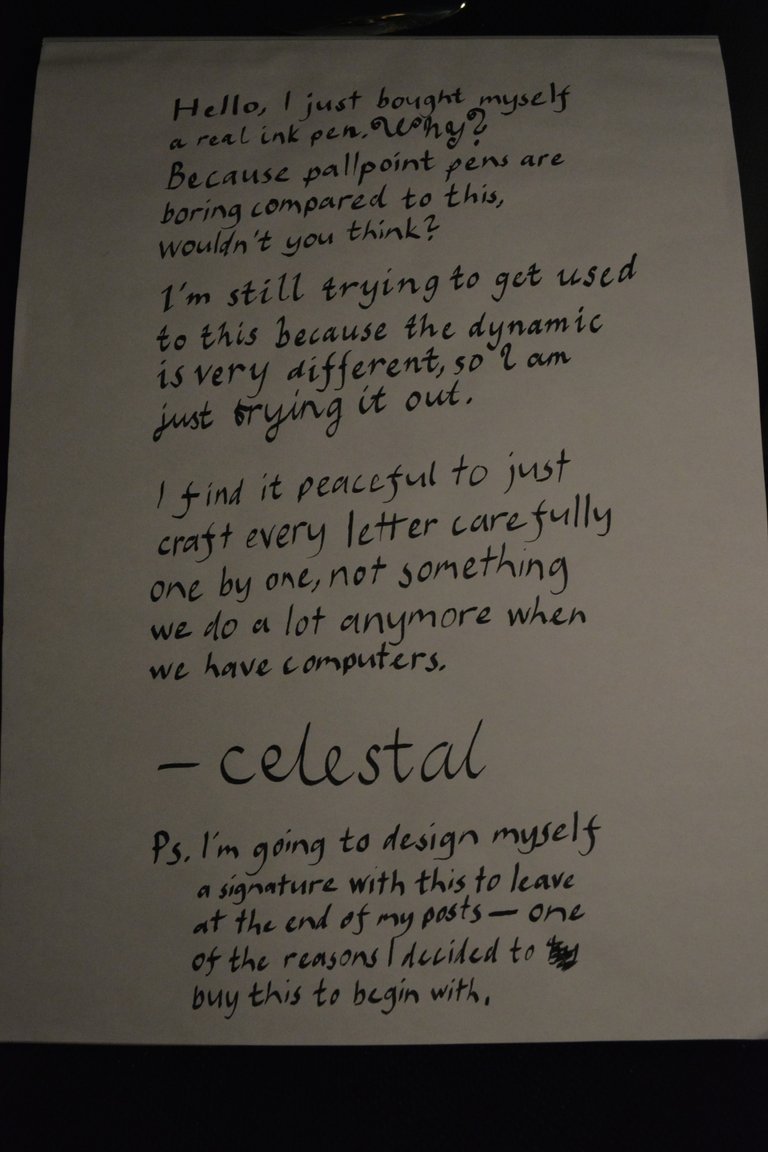 Hello, I just bought myself
a real ink pen. Why?
Because pallpoint pens are
boring compared to this,
wouldn't you think?
I'm still trying to get used
to this because the dynamic
is very different, so I am
just trying it out.
I find it peaceful to just
craft every letter carefully
one by one, not something
we do a lot anymore when
we have computers.
— celestal
Ps. I'm going to design myself
a signature with this to leave
at the end of my posts — one
of the reasons I decided to
buy this to begin with.